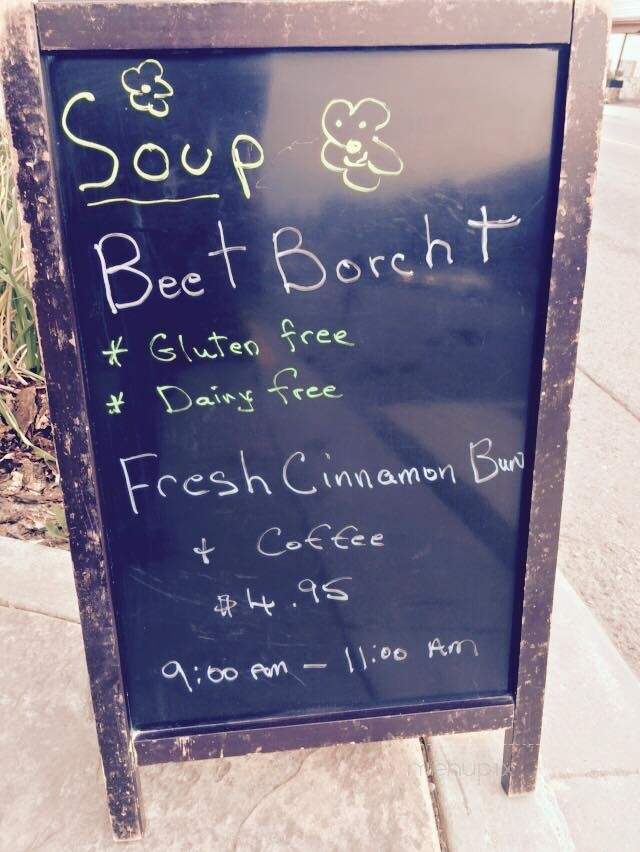 Soup
Beet Borcht
* Gluten free
* Dairy free
Fresh Cinnamon Bun
& Coffee
$4.95
9:00 Am - 11:00 Am